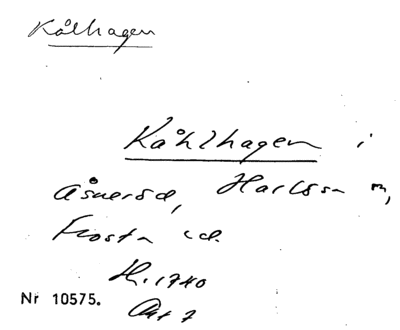 Kålhagen
Kåhlhagen i
Åsneröd, Harlösa sn,
Frosta hd.
H. 1740
Akt 7
Nr 10575.